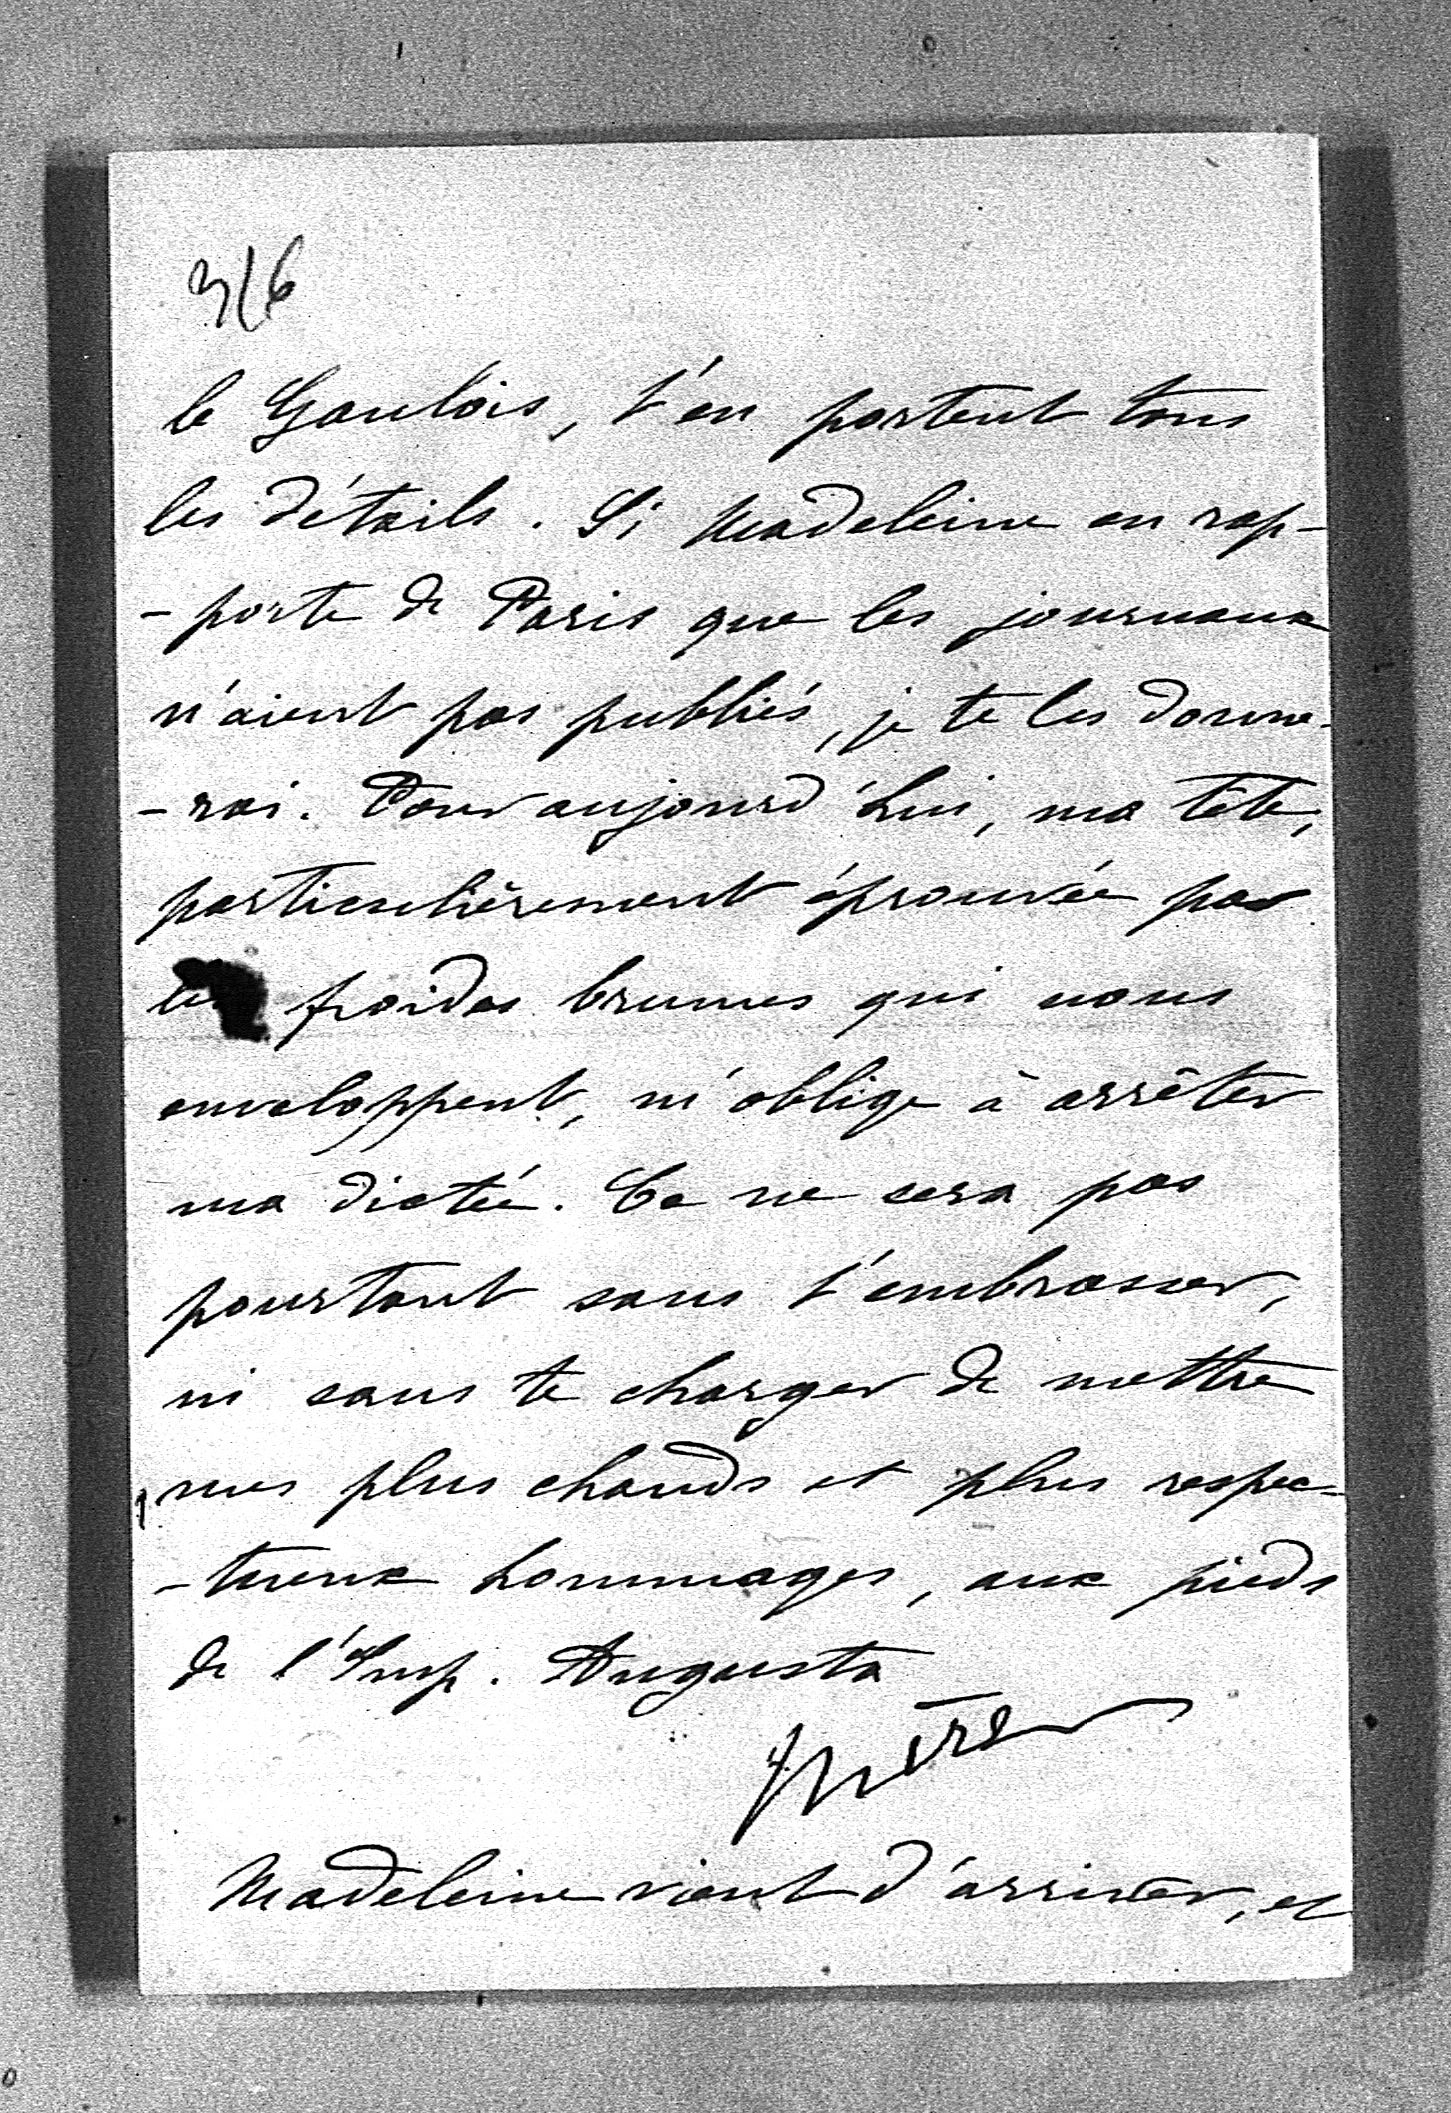 3/6
le Gaulois, t'en portent tous
les détails. Si Madeleine en rap-
-porte de Paris que les journaux
n'aient pas publiés, je te les donne-
-rai. Pour aujourd'hui, ma tête,
particulièrement éprouvée par
les froides brumes qui nous
enveloppent, m'oblige à arrêter
ma dictée. Ce ne sera pas
pourtant sans t'embrasser,
ni sans te charger de mettre
mes plus chauds et plus respec-
-tueux hommages, aux pieds
de l'Imp. Augusta
Madeleine vient d'arriver, et